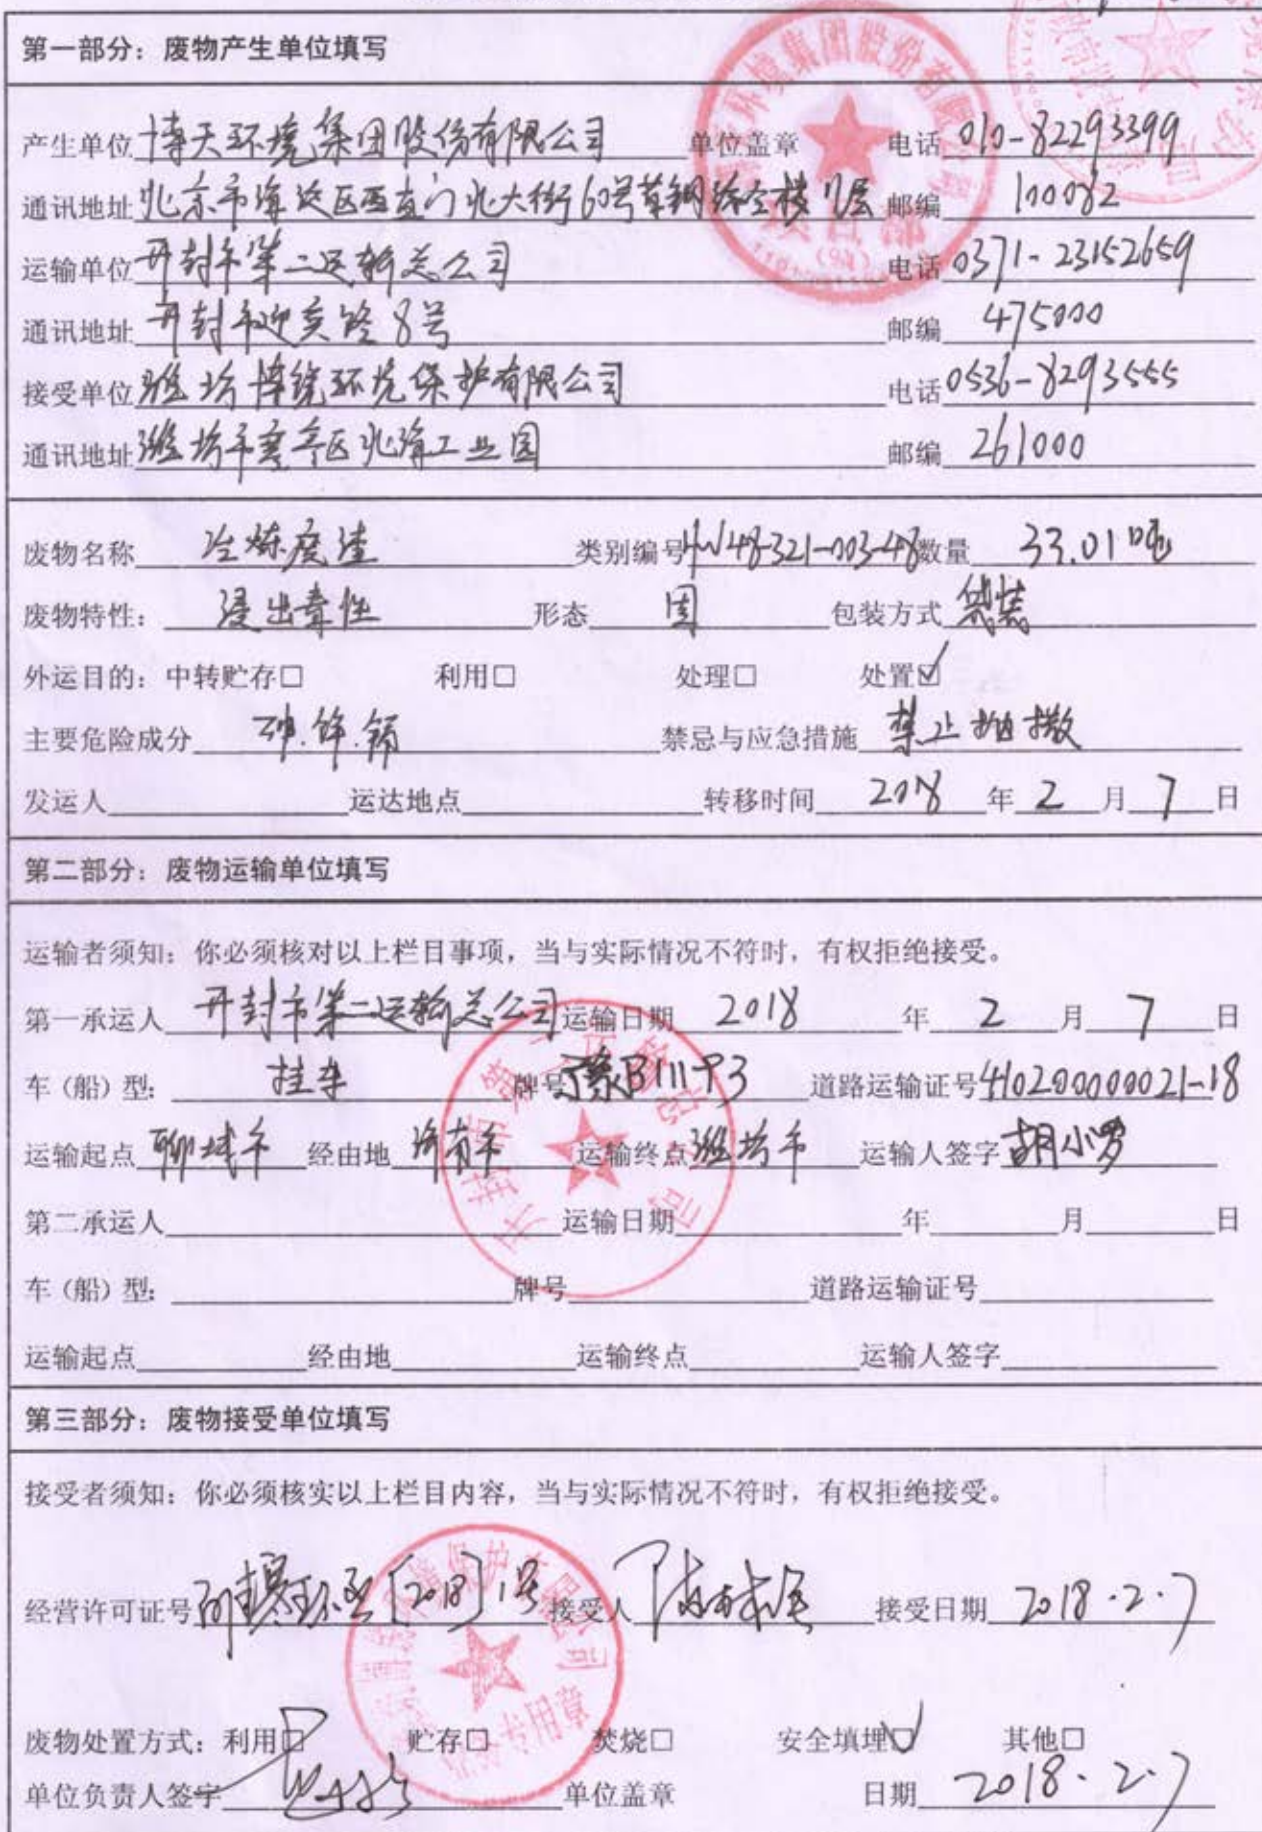 第一部分：废物产生单位填写
产生单位 博天环境集团股份有限公司 单位盖章 电话 010-82293399
通讯地址 北京市海淀区西直门北大街60号首钢综合楼11层 邮编 100082
运输单位 开封市第二运输总公司 电话 0371-23152659
通讯地址 开封市迎宾路8号 邮编 475000
接受单位 潍坊博锐环境保护有限公司 电话 0536-8293555
通讯地址 潍坊市寒亭区北海工业园 邮编 261000
废物名称 冶炼废渣 类别编号 HW48-321-003-48 数量 33.01吨
废物特性： 浸出毒性 形态 固 包装方式 袋装
外运目的：中转贮存□ 利用□ 处理□ 处置☑
主要危险成分 砷.锌.镉 禁忌与应急措施 禁止抛撒
发运人 运达地点 转移时间 2018 年 2 月 7 日
第二部分：废物运输单位填写
运输者须知：你必须核对以上栏目事项，当与实际情况不符时，有权拒绝接受。
第一承运人 开封市第二运输总公司 运输日期 2018 年 2 月 7 日
车（船）型： 挂车 牌号 道路运输证号 410200000021-18
运输起点 聊城市 经由地 济南市 运输终点 潍坊市 运输人签字 胡小罗
第二承运人 运输日期 年 月 日
车（船）型： 牌号 道路运输证号
运输起点 经由地 运输终点 运输人签字
第三部分：废物接受单位填写
接受者须知：你必须核实以上栏目内容，当与实际情况不符时，有权拒绝接受。
经营许可证号 [2018]1号 接受人 接受日期 2018.2.7
废物处置方式：利用□ 贮存□ 焚烧□ 安全填埋☑ 其他□
单位负责人签字 单位盖章 日期 2018.2.7